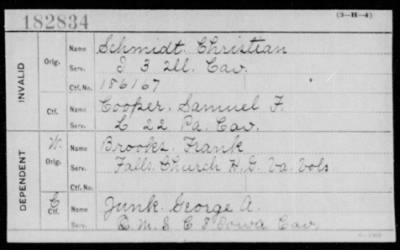 182834
(3-H-4)
INVALID
Orig.
Name Schmidt, Christian
Serv. I 3 Ill. Cav.
Ctf. No. 186167
Ctf.
Name Cooper, Samuel F.
Serv. L 22 Pa. Cav.
DEPENDENT
W.
Orig.
Name Brooks, Frank
Serv. Falls Church H. G. Va. Vols
Ctf. No.
C
Ctf.
Name Junk, George A.
Serv. Q. M. S. C 8 Iowa Cav.